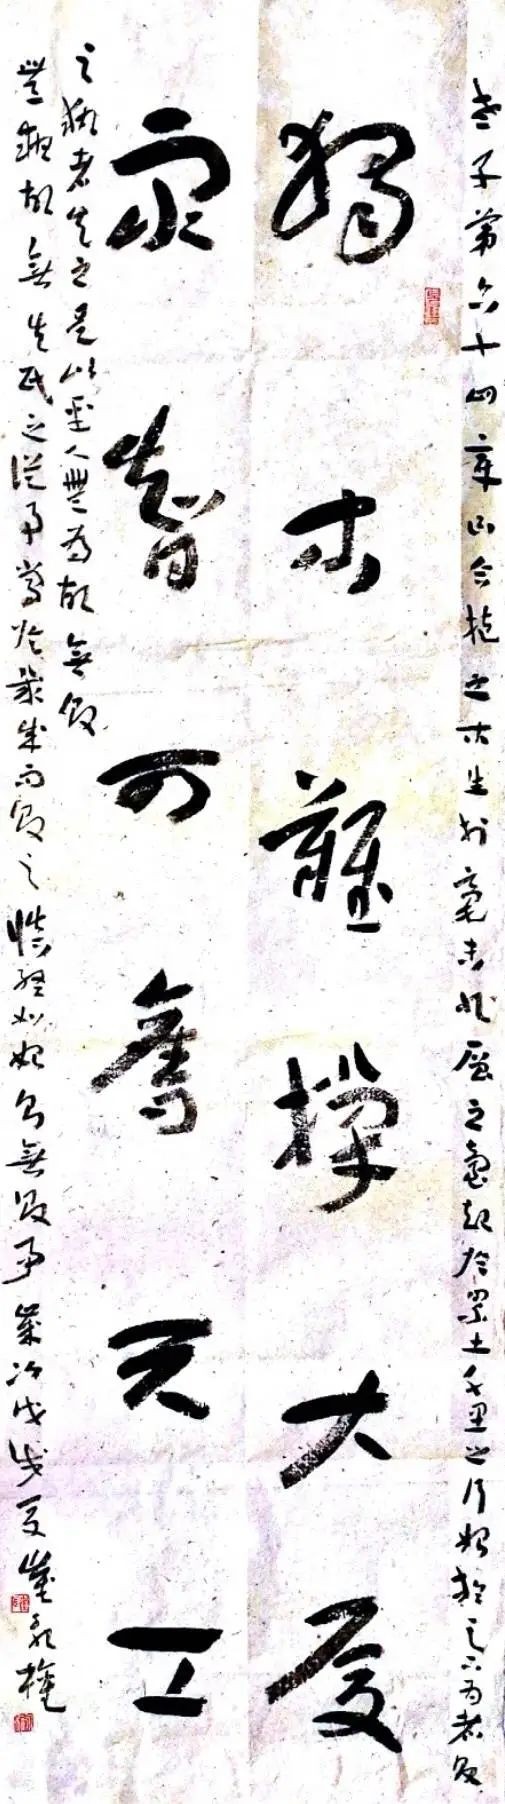 老子第六十四章曰合抱之木生於毫末九層之臺起於累土千里之行始於足下為者敗
獨木難撐大厦
眾智可奮天工
之執者失之是以聖人無為故無敗
無執故無失民之從事常於幾成而敗之慎終如始則無敗事歲次戊戌夏崔